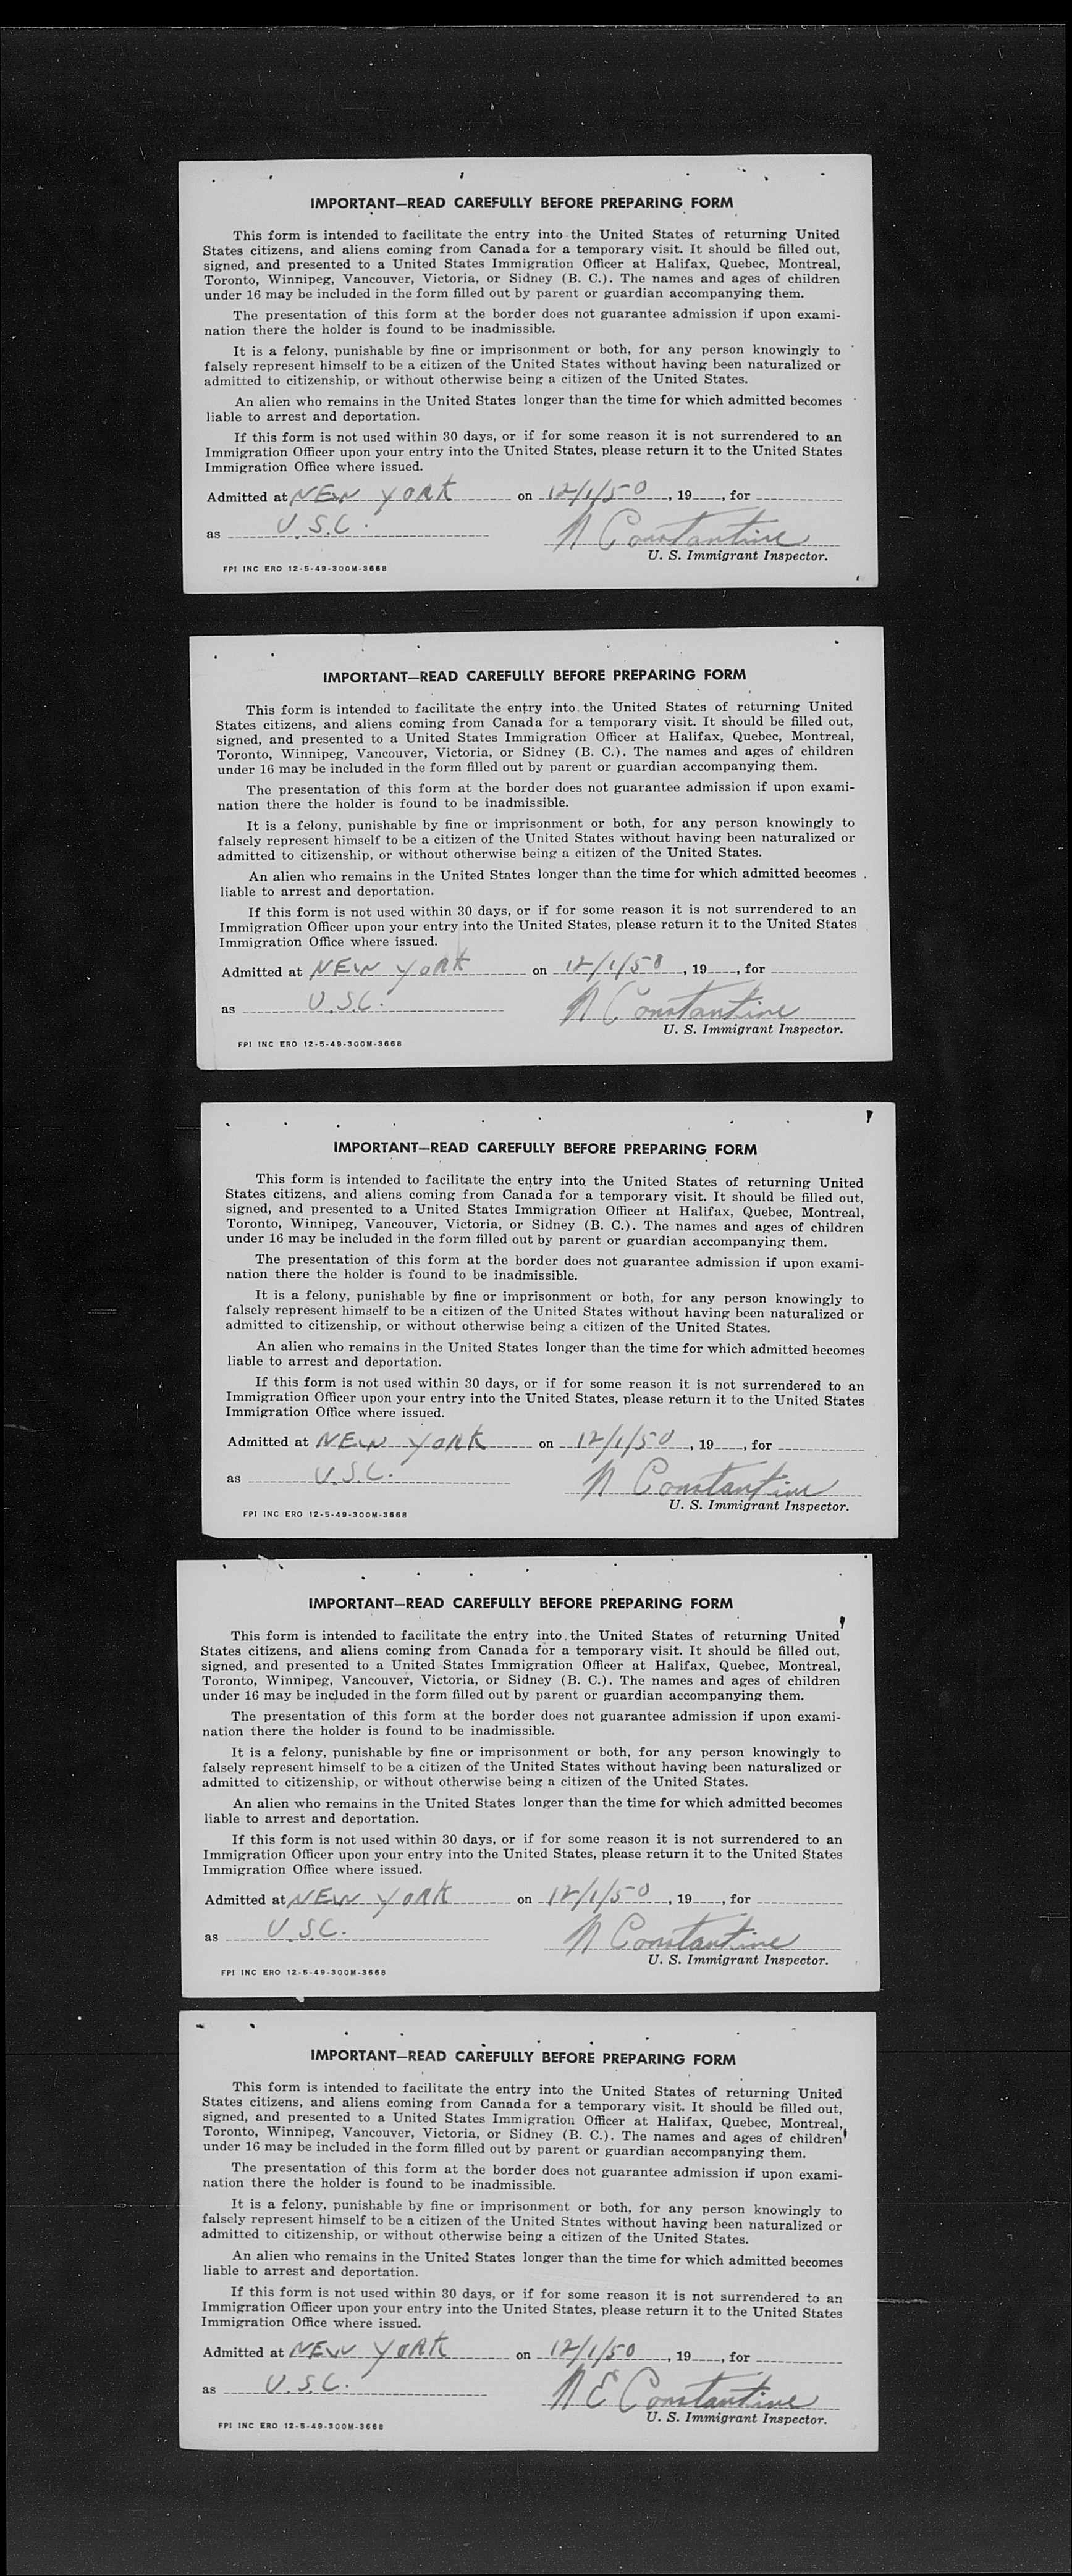 IMPORTANT—READ CAREFULLY BEFORE PREPARING FORM
This form is intended to facilitate the entry into the United States of returning United
States citizens, and aliens coming from Canada for a temporary visit. It should be filled out,
signed, and presented to a United States Immigration Officer at Halifax, Quebec, Montreal,
Toronto, Winnipeg, Vancouver, Victoria, or Sidney (B. C.). The names and ages of children
under 16 may be included in the form filled out by parent or guardian accompanying them.
The presentation of this form at the border does not guarantee admission if upon exami-
nation there the holder is found to be inadmissible.
It is a felony, punishable by fine or imprisonment or both, for any person knowingly to
falsely represent himself to be a citizen of the United States without having been naturalized or
admitted to citizenship, or without otherwise being a citizen of the United States.
An alien who remains in the United States longer than the time for which admitted becomes
liable to arrest and deportation.
If this form is not used within 30 days, or if for some reason it is not surrendered to an
Immigration Officer upon your entry into the United States, please return it to the United States
Immigration Office where issued.
Admitted at NEW YORK on 12/1/50, 19___, for
as U.S.C. N Constantine
U. S. Immigrant Inspector.
FPI INC ERO 12-5-49-300M-3668
IMPORTANT—READ CAREFULLY BEFORE PREPARING FORM
This form is intended to facilitate the entry into the United States of returning United
States citizens, and aliens coming from Canada for a temporary visit. It should be filled out,
signed, and presented to a United States Immigration Officer at Halifax, Quebec, Montreal,
Toronto, Winnipeg, Vancouver, Victoria, or Sidney (B. C.). The names and ages of children
under 16 may be included in the form filled out by parent or guardian accompanying them.
The presentation of this form at the border does not guarantee admission if upon exami-
nation there the holder is found to be inadmissible.
It is a felony, punishable by fine or imprisonment or both, for any person knowingly to
falsely represent himself to be a citizen of the United States without having been naturalized or
admitted to citizenship, or without otherwise being a citizen of the United States.
An alien who remains in the United States longer than the time for which admitted becomes
liable to arrest and deportation.
If this form is not used within 30 days, or if for some reason it is not surrendered to an
Immigration Officer upon your entry into the United States, please return it to the United States
Immigration Office where issued.
Admitted at NEW YORK on 12/1/50, 19___, for
as U.S.C. N Constantine
U. S. Immigrant Inspector.
FPI INC ERO 12-5-49-300M-3668
IMPORTANT—READ CAREFULLY BEFORE PREPARING FORM
This form is intended to facilitate the entry into the United States of returning United
States citizens, and aliens coming from Canada for a temporary visit. It should be filled out,
signed, and presented to a United States Immigration Officer at Halifax, Quebec, Montreal,
Toronto, Winnipeg, Vancouver, Victoria, or Sidney (B. C.). The names and ages of children
under 16 may be included in the form filled out by parent or guardian accompanying them.
The presentation of this form at the border does not guarantee admission if upon exami-
nation there the holder is found to be inadmissible.
It is a felony, punishable by fine or imprisonment or both, for any person knowingly to
falsely represent himself to be a citizen of the United States without having been naturalized or
admitted to citizenship, or without otherwise being a citizen of the United States.
An alien who remains in the United States longer than the time for which admitted becomes
liable to arrest and deportation.
If this form is not used within 30 days, or if for some reason it is not surrendered to an
Immigration Officer upon your entry into the United States, please return it to the United States
Immigration Office where issued.
Admitted at NEW YORK on 12/1/50, 19___, for
as U.S.C. N Constantine
U. S. Immigrant Inspector.
FPI INC ERO 12-5-49-300M-3668
IMPORTANT—READ CAREFULLY BEFORE PREPARING FORM
This form is intended to facilitate the entry into the United States of returning United
States citizens, and aliens coming from Canada for a temporary visit. It should be filled out,
signed, and presented to a United States Immigration Officer at Halifax, Quebec, Montreal,
Toronto, Winnipeg, Vancouver, Victoria, or Sidney (B. C.). The names and ages of children
under 16 may be included in the form filled out by parent or guardian accompanying them.
The presentation of this form at the border does not guarantee admission if upon exami-
nation there the holder is found to be inadmissible.
It is a felony, punishable by fine or imprisonment or both, for any person knowingly to
falsely represent himself to be a citizen of the United States without having been naturalized or
admitted to citizenship, or without otherwise being a citizen of the United States.
An alien who remains in the United States longer than the time for which admitted becomes
liable to arrest and deportation.
If this form is not used within 30 days, or if for some reason it is not surrendered to an
Immigration Officer upon your entry into the United States, please return it to the United States
Immigration Office where issued.
Admitted at NEW YORK on 12/1/50, 19___, for
as U.S.C. N Constantine
U. S. Immigrant Inspector.
FPI INC ERO 12-5-49-300M-3668
IMPORTANT—READ CAREFULLY BEFORE PREPARING FORM
This form is intended to facilitate the entry into the United States of returning United
States citizens, and aliens coming from Canada for a temporary visit. It should be filled out,
signed, and presented to a United States Immigration Officer at Halifax, Quebec, Montreal,
Toronto, Winnipeg, Vancouver, Victoria, or Sidney (B. C.). The names and ages of children
under 16 may be included in the form filled out by parent or guardian accompanying them.
The presentation of this form at the border does not guarantee admission if upon exami-
nation there the holder is found to be inadmissible.
It is a felony, punishable by fine or imprisonment or both, for any person knowingly to
falsely represent himself to be a citizen of the United States without having been naturalized or
admitted to citizenship, or without otherwise being a citizen of the United States.
An alien who remains in the United States longer than the time for which admitted becomes
liable to arrest and deportation.
If this form is not used within 30 days, or if for some reason it is not surrendered to an
Immigration Officer upon your entry into the United States, please return it to the United States
Immigration Office where issued.
Admitted at NEW YORK on 12/1/50, 19___, for
as U.S.C. N E Constantine
U. S. Immigrant Inspector.
FPI INC ERO 12-5-49-300M-3668